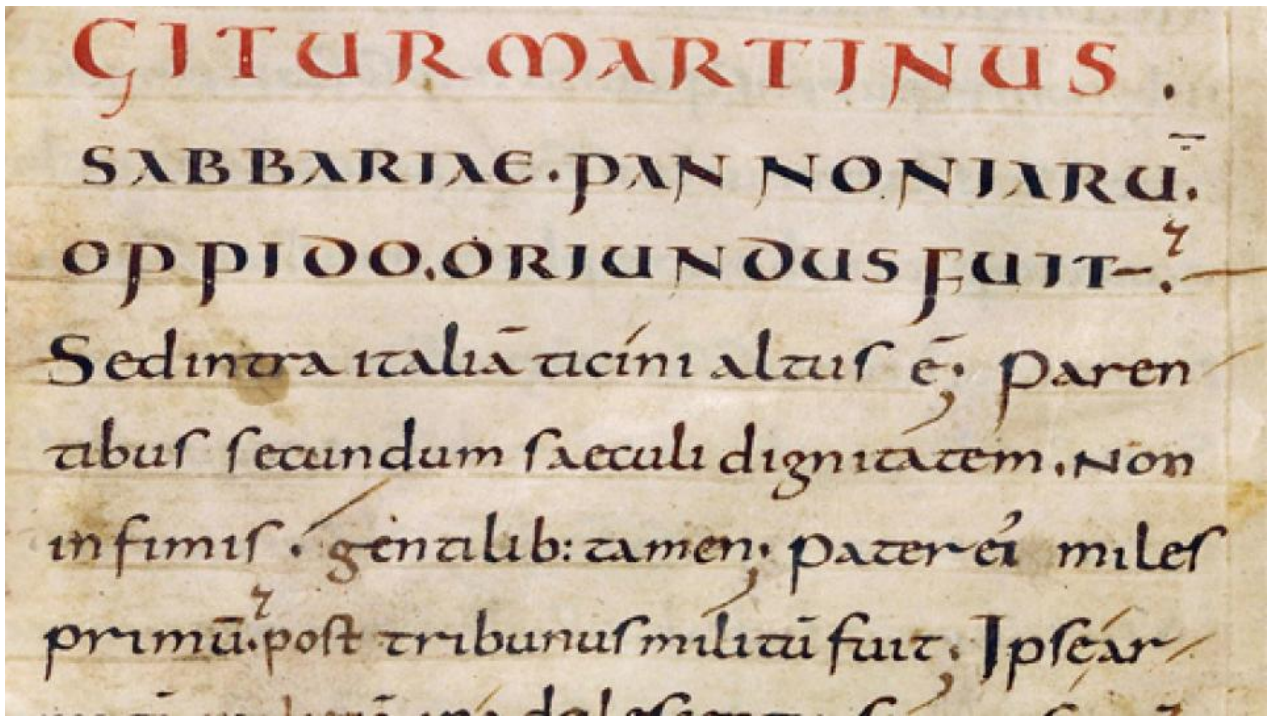 GITUR MARTINUS.
SABBARIAE. PANNONIARU̅.
OPPIDO. ORIUNDUS FUIT.
Sed intra italiā ticini altus ē; Paren
tibus secundum saeculi dignitatem. Non
infimis. gentilib: tamen; Pater ei' miles
primū. post tribunus militū fuit; Ipse ar